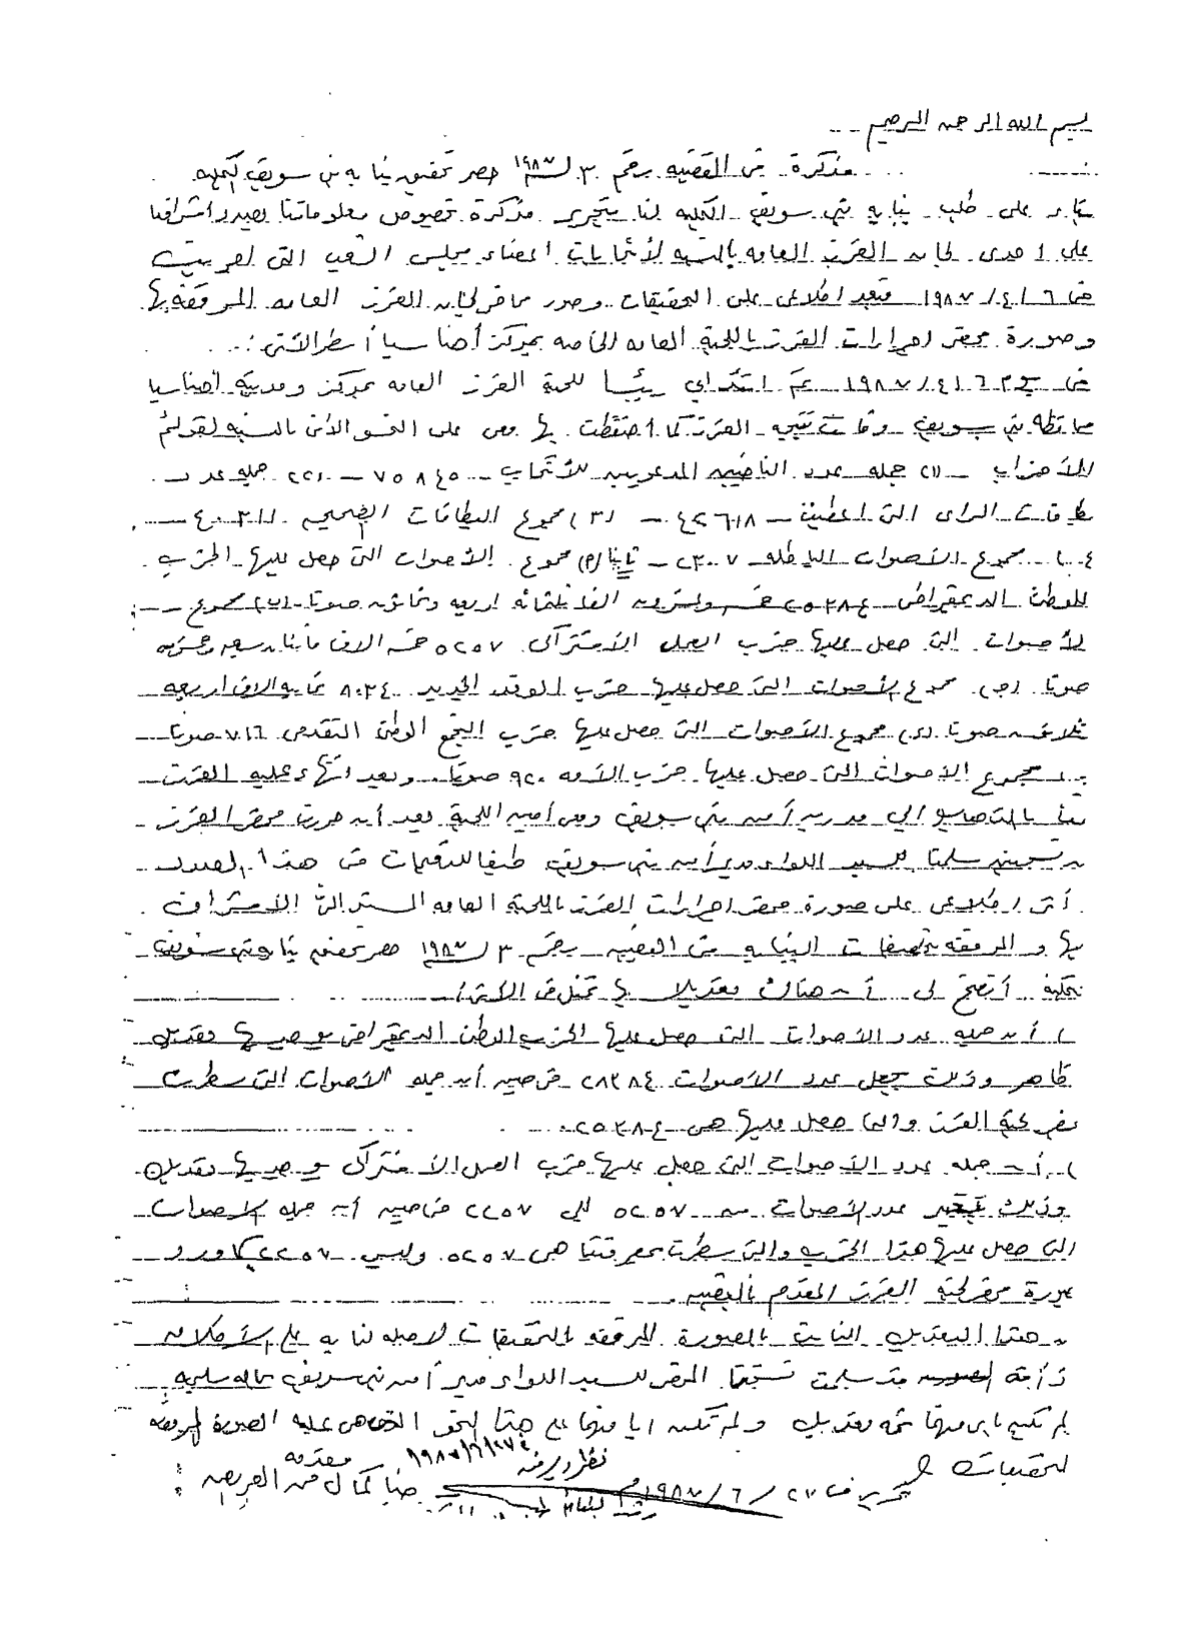 بسم الله الرحمن الرحيم
مذكرة فى القضيه رقم ٣ لسنة ١٩٨٧ حصر تحقيق نيابه بنى سويف الكليه
بناء على طلب نيابه بنى سويف الكليه لنا بتحرير مذكرة بخصوص معلوماتنا بصدد اشرافنا
على احدى لجان الفرز العامه بالنسبه لأنتخابات اعضاء مجلس الشعب التى اجريت
فى ٦/٤/١٩٨٧ فبعد اطلاعى على التحقيقات وصور محاضر لجان الفرز العامه المرفقه بها
وصورة محضر اجراءات الفرز باللجنة العامه الخاصه بمركز أهناسيا أسطر الآتى :
فى يوم ٦/٤/١٩٨٧ تم انتدابى رئيسا للجنة الفرز العامه بمركز ومدينة اهناسيا
محافظة بنى سويف وكانت نتيجه الفرز كما أحتفظت بها وهى على النحو الآتى بالنسبه لقوائم
الأحزاب (١) جمله عدد الناخبين المدعويين للأنتخاب ٧٥٨٤٥ (٢) جملة عدد
بطاقات الرأى التى اعطيت ٤٢٦١٨ (٣) مجموع البطاقات الصحيحه ٤٠٣١١
(٤) مجموع الأصوات الباطله ٢٣٠٧ ثانيا (أ) مجموع الأصوات التى حصل عليها الحزب
الوطنى الديمقراطى ٢٥٣٨٤ خمسه وعشرون الفا ثلثمائه اربعه وثمانون صوتا (ب) مجموع
الأصوات التى حصل عليها حزب العمل الأشتراكى ٥٢٥٧ خمسه الاف مائتان سبعه وخمسون
صوتا (ج) مجموع الأصوات التى حصل عليها حزب الوفد الجديد ٨٠٣٤ ثمانيه الاف اربعه
ثلاثون صوتا (د) مجموع الأصوات التى حصل عليها حزب التجمع الوطنى التقدمى ٧١٦ صوتا
مجموع الأصوات التى حصل عليها حزب الأمه ٩٢٠ صوتا وبعد انتهاء عمليه الفرز
بالتصاميم الى مديرية أمن بنى سويف ومعى أمين اللجنة وبعد أن حررت محضر الفرز
من نسختين سلمتا للسيد اللواء مدير أمن بنى سويف طبقا للتعليمات فى هذا الصدد
أننى باطلاعى على صورة محضر اجراءات الفرز باللجنة العامه المسند الى الأشراف
بها والمرفقه بتحقيقات النيابه فى القضيه رقم ٣/١٩٨٧ حصر تحقيق نيابة بنى سويف
الكلية أتضح لى أن هناك تعديلا بها تمثل فى الآتى :
) أن جمله عدد الأصوات التى حصل عليها الحزب الوطنى الديمقراطى يوجد بها تعديل
ظاهر وذلك بجعل عدد الأصوات ٢٨٣٨٤ فى حين أن جمله الأصوات التى سطرت
بمحضر لجنة الفرز والتى حصل عليها هى ٢٥٣٨٤
) أن جمله عدد الأصوات التى حصل عليها حزب العمل الأشتراكى يوجد بها تعديل
وذلك بتغير عدد الأصوات من ٥٢٥٧ الى ٢٢٥٧ فى حين أن جمله الأصوات
التى حصل عليها هذا الحزب والتى سطرت بمعرفتنا هى ٥٢٥٧ وليس ٢٢٥٧ كما ورد
بصورة محضر لجنة الفرز المقدم بالقضيه
هذا التعديل الثابت بالصورة المرفقه بالتحقيقات لا صله لنا به على الأطلاق
قد سلمت نسختا المحضر للسيد اللواء مدير أمن بنى سويف بحاله سليمه
لم يكن بأى منهما ثمه تعديل ولم تكن ايا منهما على هذا النحو الذى هى عليه الصورة المرفقه
بالتحقيقات
تحريرا فى ٢٧/٦/١٩٨٧م
نظر وارفق
مقدمه